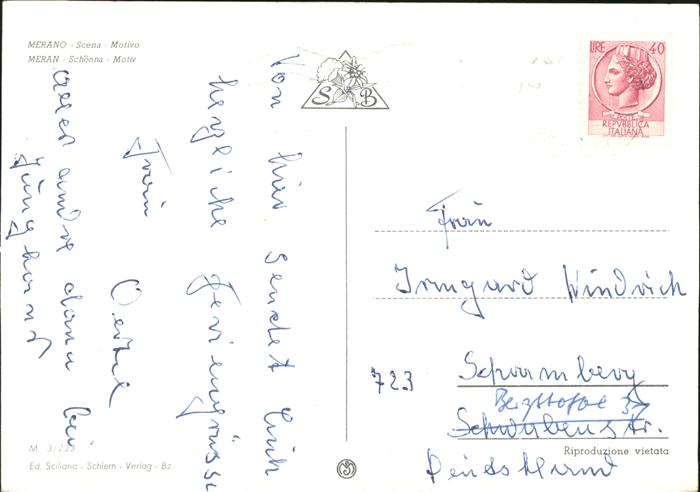 MERANO - Scena - Motivo
MERAN - Schönna - Motiv
S B
LIRE 40
POSTE
REPVBBLICA
ITALIANA
Von hier sendet Euch
herzliche Feriengrüsse
Frau Oertel
alles andre dann bei
Frau
Irmgard Windrich
723 Schramberg
Schwabenstr.
Deutschland
M 3/233
Ed. Sciliana - Schlern - Verlag - Bz.
Riproduzione vietata